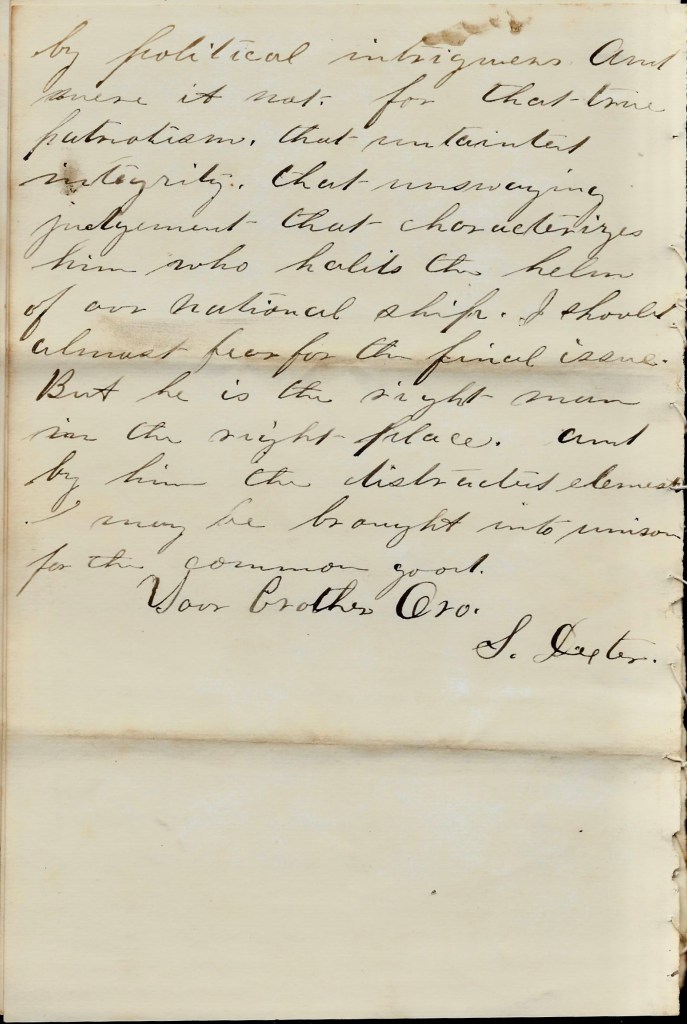 by political intriguers And
were it not. for that true
patriotism. that untainted
integrity. that unswaying
judgement that characterizes
him who holds the helm
of our national ship. I should
almost fear for the final issue.
But he is the right man
in the right place. and
by him the distracted element
may be brought into unison
for the common good.
Your brother Oro.
S. Dexter.